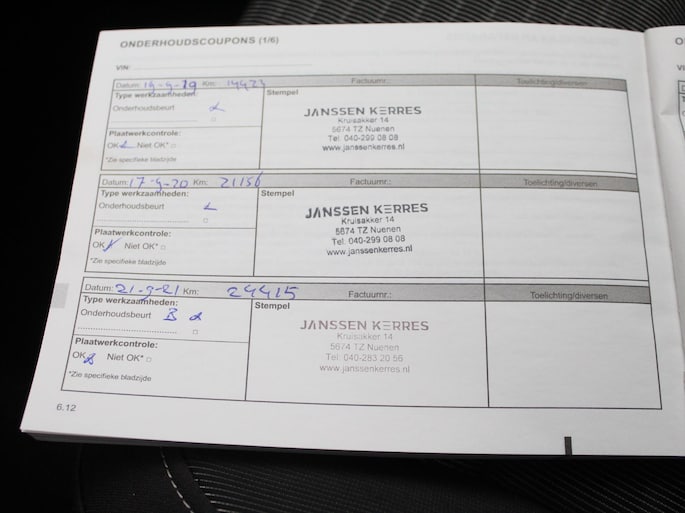 ONDERHOUDSCOUPONS (1/6)
VIN:
Datum: 19-9-19 Km: 14423 Factuurnr.: Toelichting/diversen
Type werkzaamheden: Stempel
Onderhoudsbeurt
Plaatwerkcontrole:
OK Niet OK*
*Zie specifieke bladzijde
JANSSEN KERRES
Kruisakker 14
5674 TZ Nuenen
Tel: 040-299 08 08
www.janssenkerres.nl
Datum: 17-9-20 Km: 21156 Factuurnr.: Toelichting/diversen
Type werkzaamheden: Stempel
Onderhoudsbeurt
Plaatwerkcontrole:
OK Niet OK*
*Zie specifieke bladzijde
JANSSEN KERRES
Kruisakker 14
5674 TZ Nuenen
Tel: 040-299 08 08
www.janssenkerres.nl
Datum: 21-9-21 Km: 24415 Factuurnr.: Toelichting/diversen
Type werkzaamheden: Stempel
Onderhoudsbeurt B
Plaatwerkcontrole:
OK Niet OK*
*Zie specifieke bladzijde
JANSSEN KERRES
Kruisakker 14
5674 TZ Nuenen
Tel: 040-283 20 56
www.janssenkerres.nl
6.12